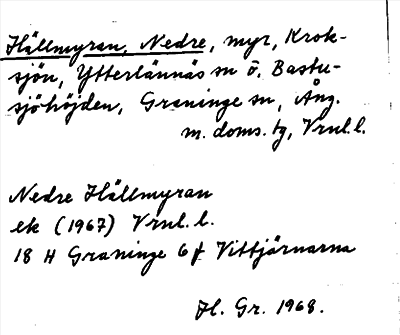 Hällmyran, Nedre, myr, Krok-
sjön, Ytterlännäs sn o. Bastu-
sjöhöjden, Graninge sn, Ång.
m. doms. tg, Vrnl. l.
Nedre Hällmyran
ek (1967) Vrnl. l.
18 H Graninge 6 f Vittjärnarna
Jl. Gr. 1968.